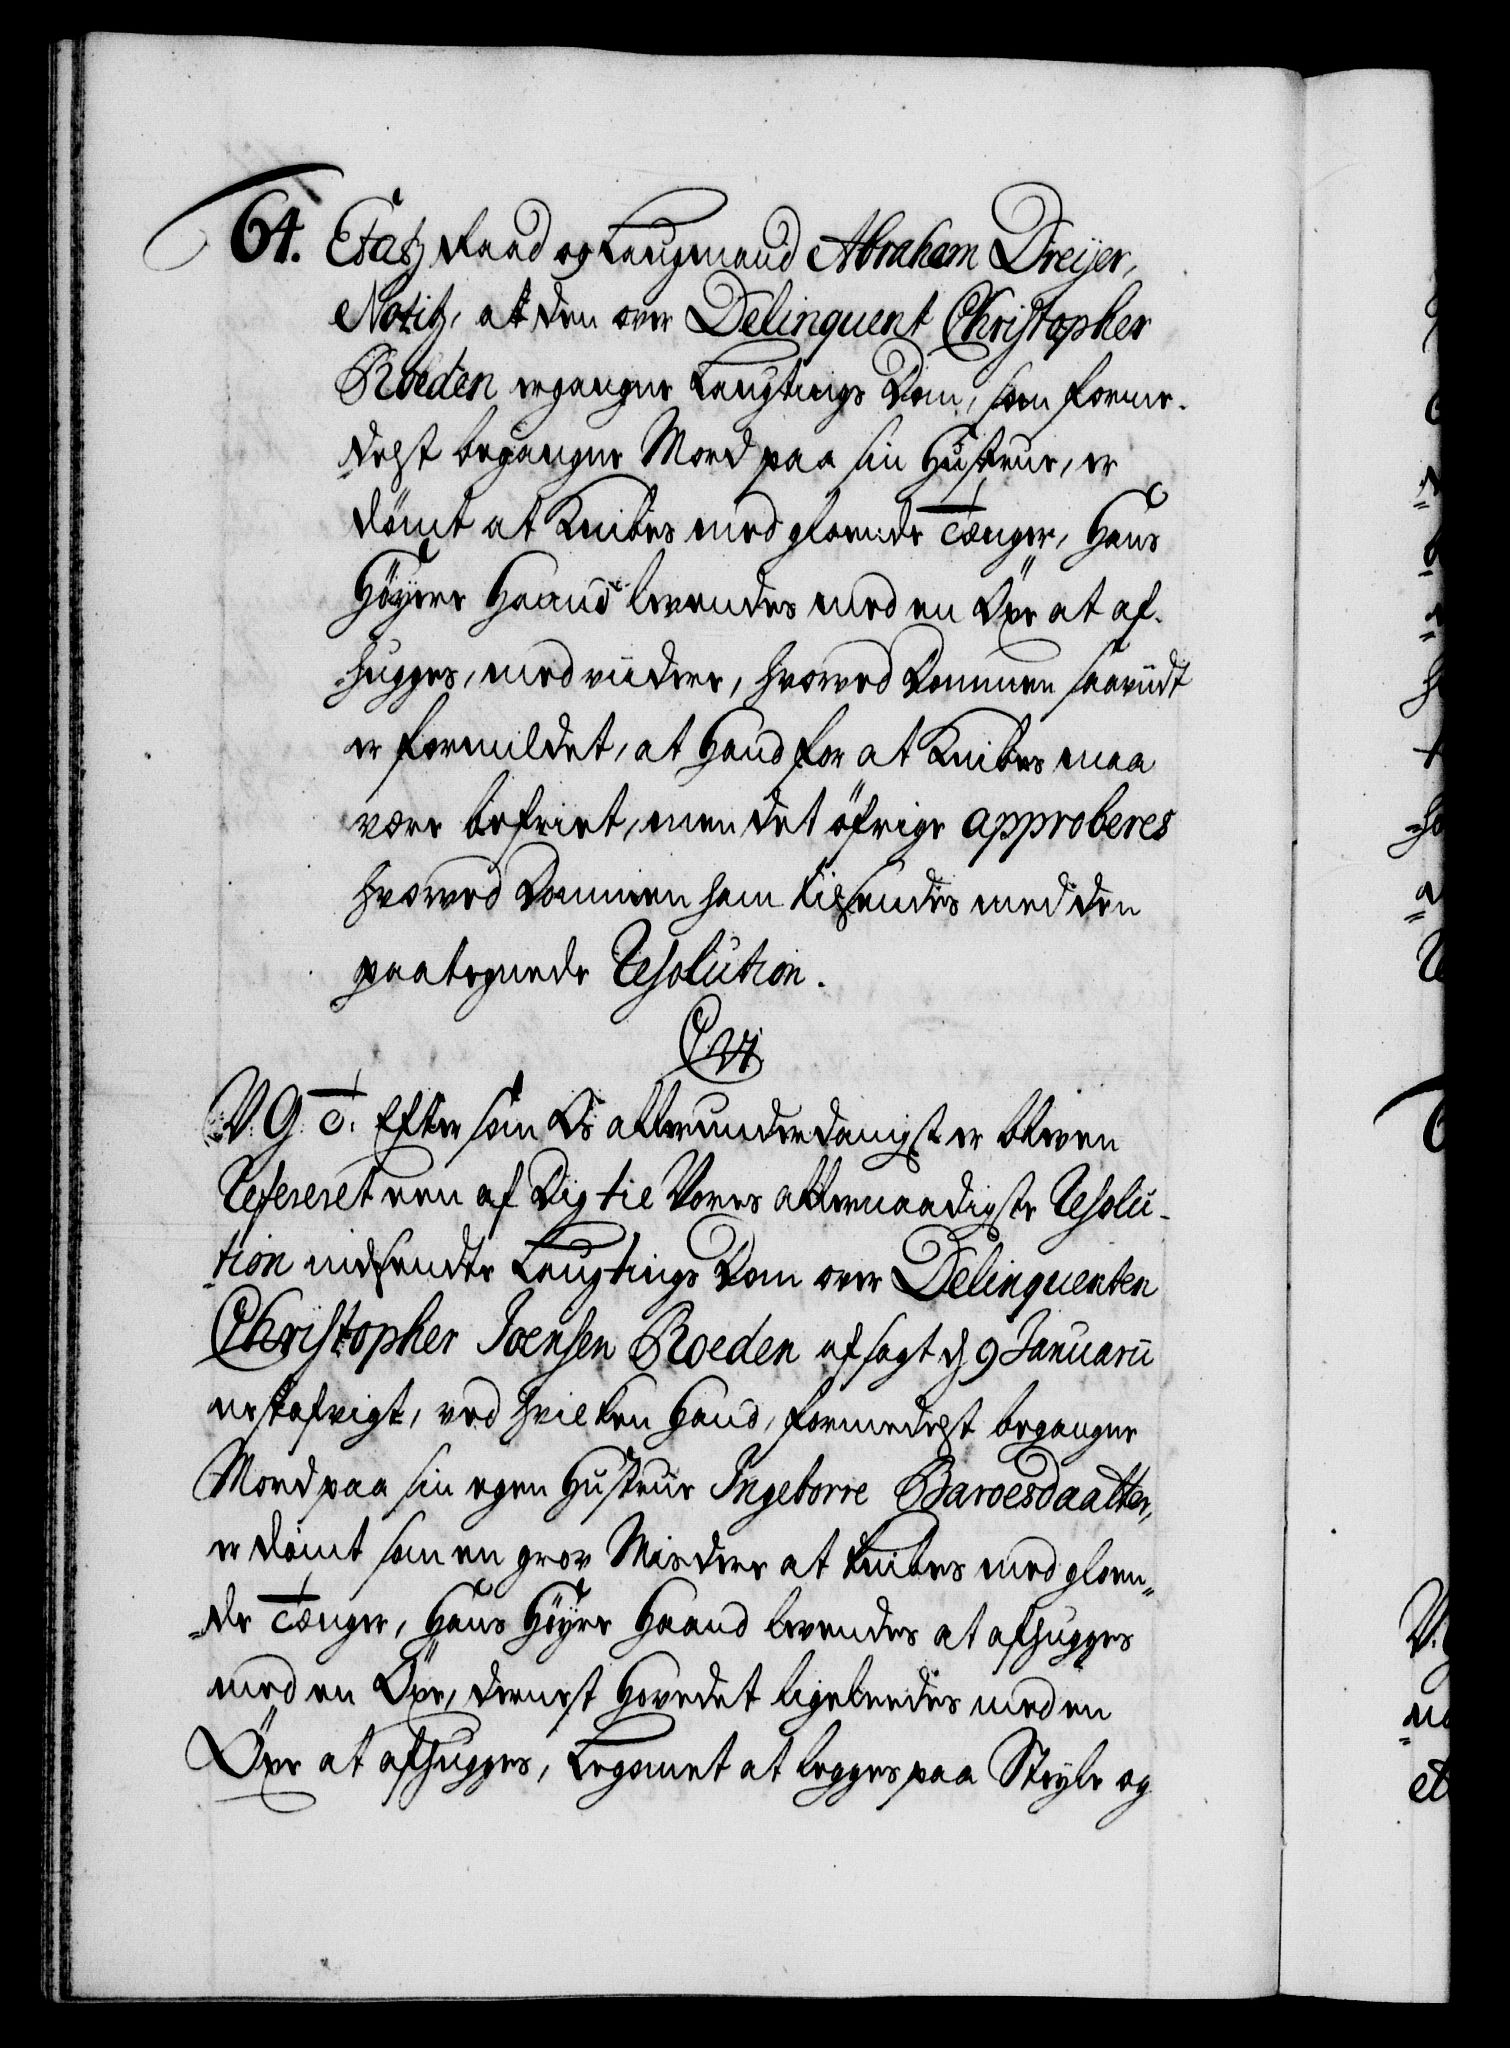 64. Etatz Raad og Laugmand Abraham Dreÿer,
Notitz, at den over Delinquent Christopher
Roeden ergangne Laugtings Dom, som forme-
delst begangne Mord paa sin Hustrue, er
dömt at Knibes med gloende Tænger, Hans
Höÿere Haand levendes med en Öxe at af-
hugges, med viidere, hvorved Dommen saaviidt
er formildet, at Hand for at Knibes maa
være befriet, men det öfrige approberes
hvorved Dommen ham tilsendes med den
paategnede Resolution.
C. VI.
V. G. T. Efter som Os allerunderdanigst er bleven
Refereret een af Dig til Vores allernaadigste Resolu-
tion indsendte Laugtings Dom over Delinquenten
Christopher Joensen Roeden afsagt d 9 Januarii
nestafvigt, ved hvilken Hand, formedelst begangne
Mord paa sin egen Hustrue Ingeborre Baroesdaatter,
er dömt som en grov Misdere at knibes med gloen-
de Tænger, Hans Höÿre Haand levendes at afhugges
med en Öxe, dernest Hovedet ligeleedes med en
Öxe at afhugges, Legomet at legges paa Steÿle og